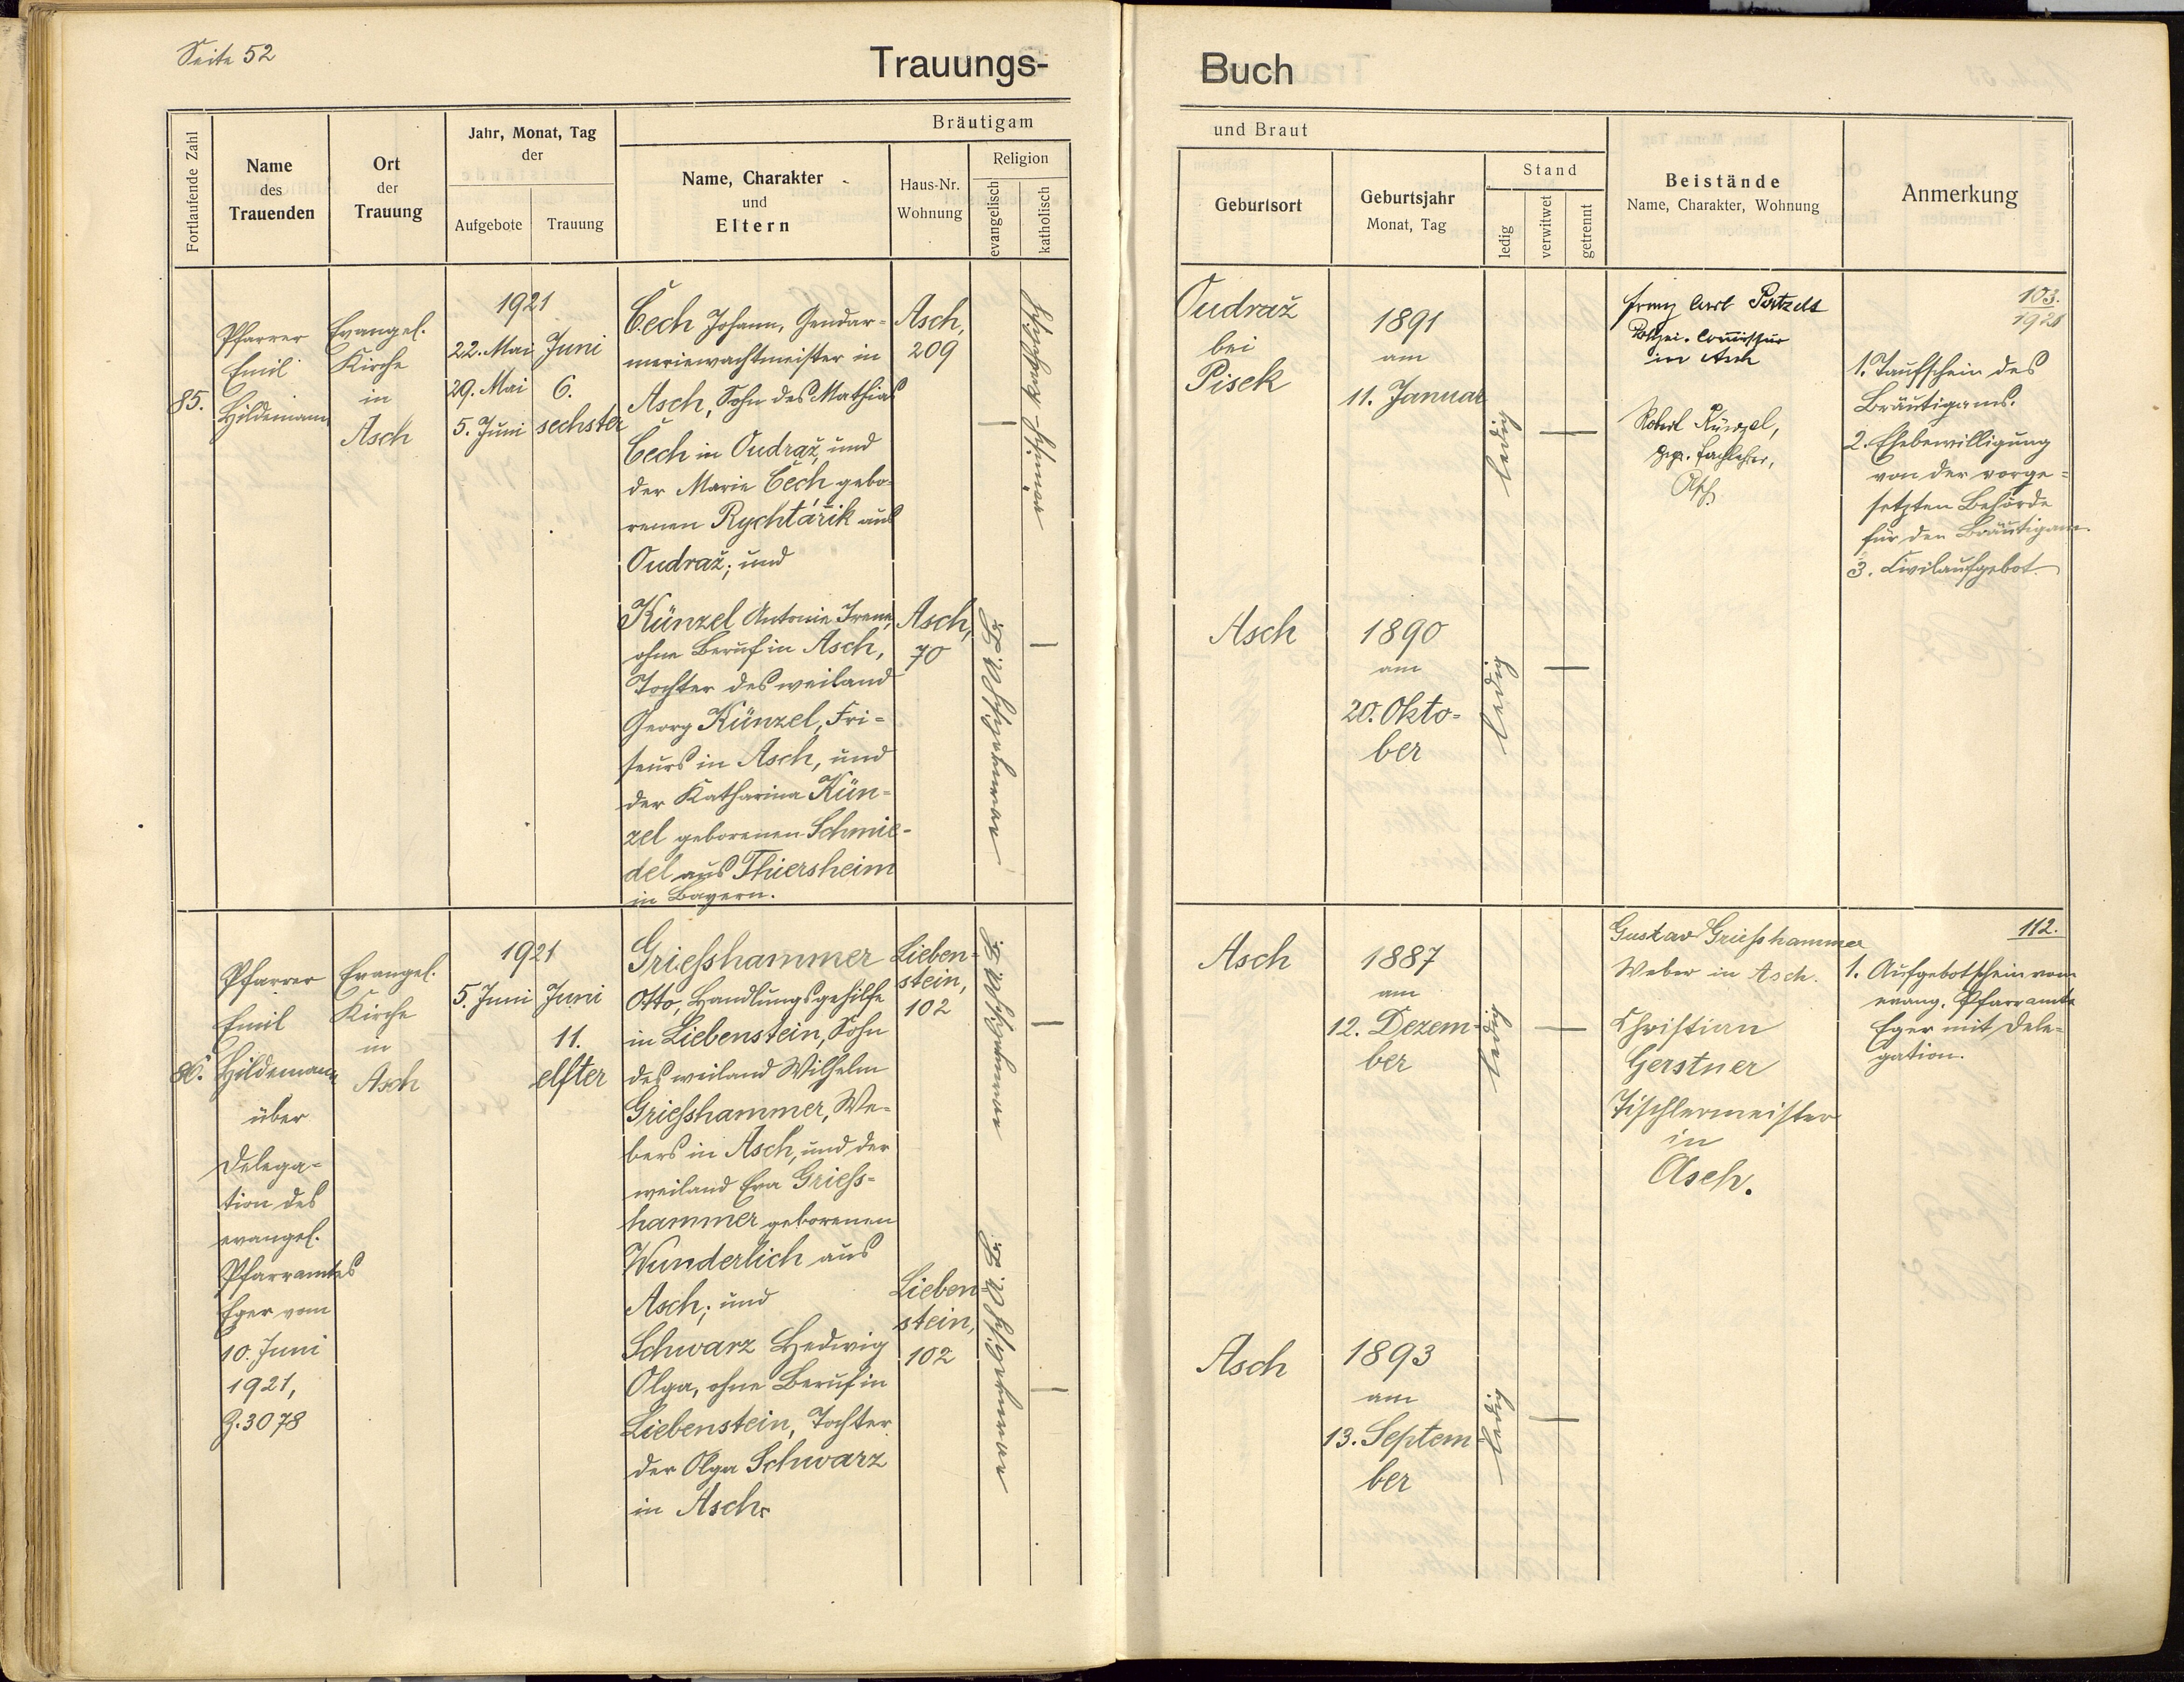 Seite 52
Trauungs-
Buch
Fortlaufende Zahl
Name
des
Trauenden
Ort
der
Trauung
Jahr, Monat, Tag
der
Aufgebote
Trauung
Bräutigam
Name, Charakter
und
Eltern
Haus-Nr.
Wohnung
Religion
evangelisch
katholisch
und Braut
Geburtsort
Geburtsjahr
Monat, Tag
Stand
ledig
verwitwet
getrennt
Beistände
Name, Charakter, Wohnung
Anmerkung
85.
Pfarrer
Emil
Hildemann
Evangel.
Kirche
in
Asch
1921
22. Mai
29. Mai
5. Juni
Juni
6.
sechster
Čech Johann, Gendar-
meriewachtmeister in
Asch, Sohn des Mathias
Čech in Oudraž, und
der Marie Čech gebo-
renen Rychtářik aus
Oudraž; und
Asch,
209
Künzel Antonie Irene,
ohne Beruf in Asch,
Tochter des weiland
Georg Künzel, Fri-
seurs in Asch, und
der Katharina Kün-
zel geborenen Schmie-
del aus Thiersheim
in Bayern.
Asch,
70
Oudraž
bei
Pisek
1891
am
11. Januar
ledig
Asch
1890
am
20. Okto-
ber
ledig
Franz Carl
in Asch
Robert Künzel,
Asch.
103.
1921
1. Taufschein des
Bräutigams.
2. Ehebewilligung
von der vorge-
setzten Behörde
für den Bräutigam.
3. Civilaufgebot.
86.
Pfarrer
Emil
Hildemann
über
Delega-
tion des
evangel.
Pfarramtes
Eger vom
10. Juni
1921,
Z. 3078
Evangel.
Kirche
in
Asch
1921
5. Juni
Juni
11.
elfter
Griesshammer
Otto, Handlungsgehilfe
in Liebenstein, Sohn
des weiland Wilhelm
Griesshammer, We-
bers in Asch, und der
weiland Eva Griess-
hammer geborenen
Wunderlich aus
Asch; und
Lieben-
stein,
102
Schwarz Hedwig
Olga, ohne Beruf in
Liebenstein, Tochter
der Olga Schwarz
in Asch.
Lieben-
stein,
102
Asch
1887
am
12. Dezem-
ber
ledig
Asch
1893
am
13. Septem-
ber
ledig
Gustav Griesshammer
Weber in Asch.
Christian
Gerstner
Tischlermeister
in
Asch.
112.
1. Aufgebotschein vom
evang. Pfarramte
Eger mit Dele-
gation.